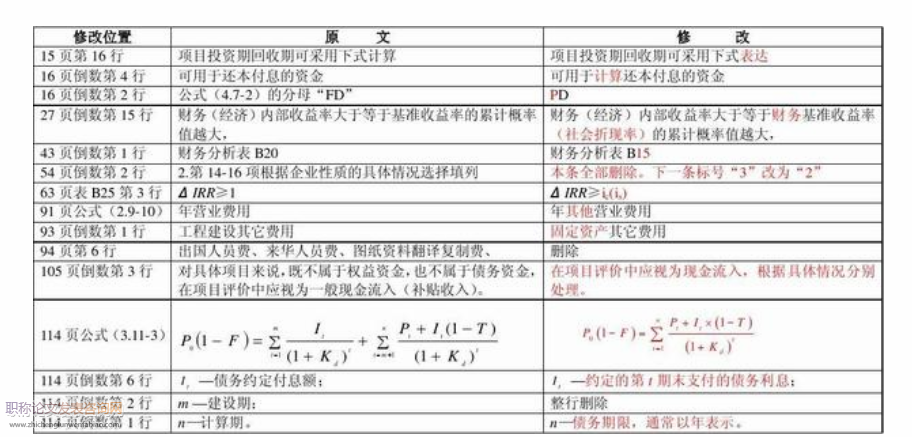 修改位置 原 文 修 改
15 页第 16 行 项目投资期回收期可采用下式计算 项目投资期回收期可采用下式表达
16 页倒数第 4 行 可用于还本付息的资金 可用于计算还本付息的资金
16 页倒数第 2 行 公式（4.7-2）的分母“FD” PD
27 页倒数第 15 行 财务（经济）内部收益率大于等于基准收益率的累计概率 财务（经济）内部收益率大于等于财务基准收益率
值越大， （社会折现率）的累计概率值越大，
43 页倒数第 1 行 财务分析表 B20 财务分析表 B15
54 页倒数第 2 行 2.第 14-16 项根据企业性质的具体情况选择填列 本条全部删除。下一条标号“3”改为“2”
63 页表 B25 第 3 行 Δ IRR≥1 Δ IRR≥ic(is)
91 页公式（2.9-10） 年营业费用 年其他营业费用
93 页倒数第 1 行 工程建设其它费用 固定资产其它费用
94 页第 6 行 出国人员费、来华人员费、图纸资料翻译复制费、 删除
105 页倒数第 3 行 对具体项目来说，既不属于权益资金，也不属于债务资金， 在项目评价中应视为现金流入，根据具体情况分别
在项目评价中应视为一般现金流入（补贴收入）。 处理。
114 页公式（3.11-3） P0(1－F)＝∑ It/(1＋Kd)^t ＋ ∑ Pt＋It(1－T)/(1＋Kd)^t P0(1－F)＝∑ Pt＋It×(1－T)/(1＋Kd)^t
114 页倒数第 6 行 It —债务约定付息额； It —约定的第 t 期末支付的债务利息；
114 页倒数第 2 行 m —建设期； 整行删除
114 页倒数第 1 行 n—计算期。 n—债务期限，通常以年表示。
www.zhichenglunwenfabiao.com